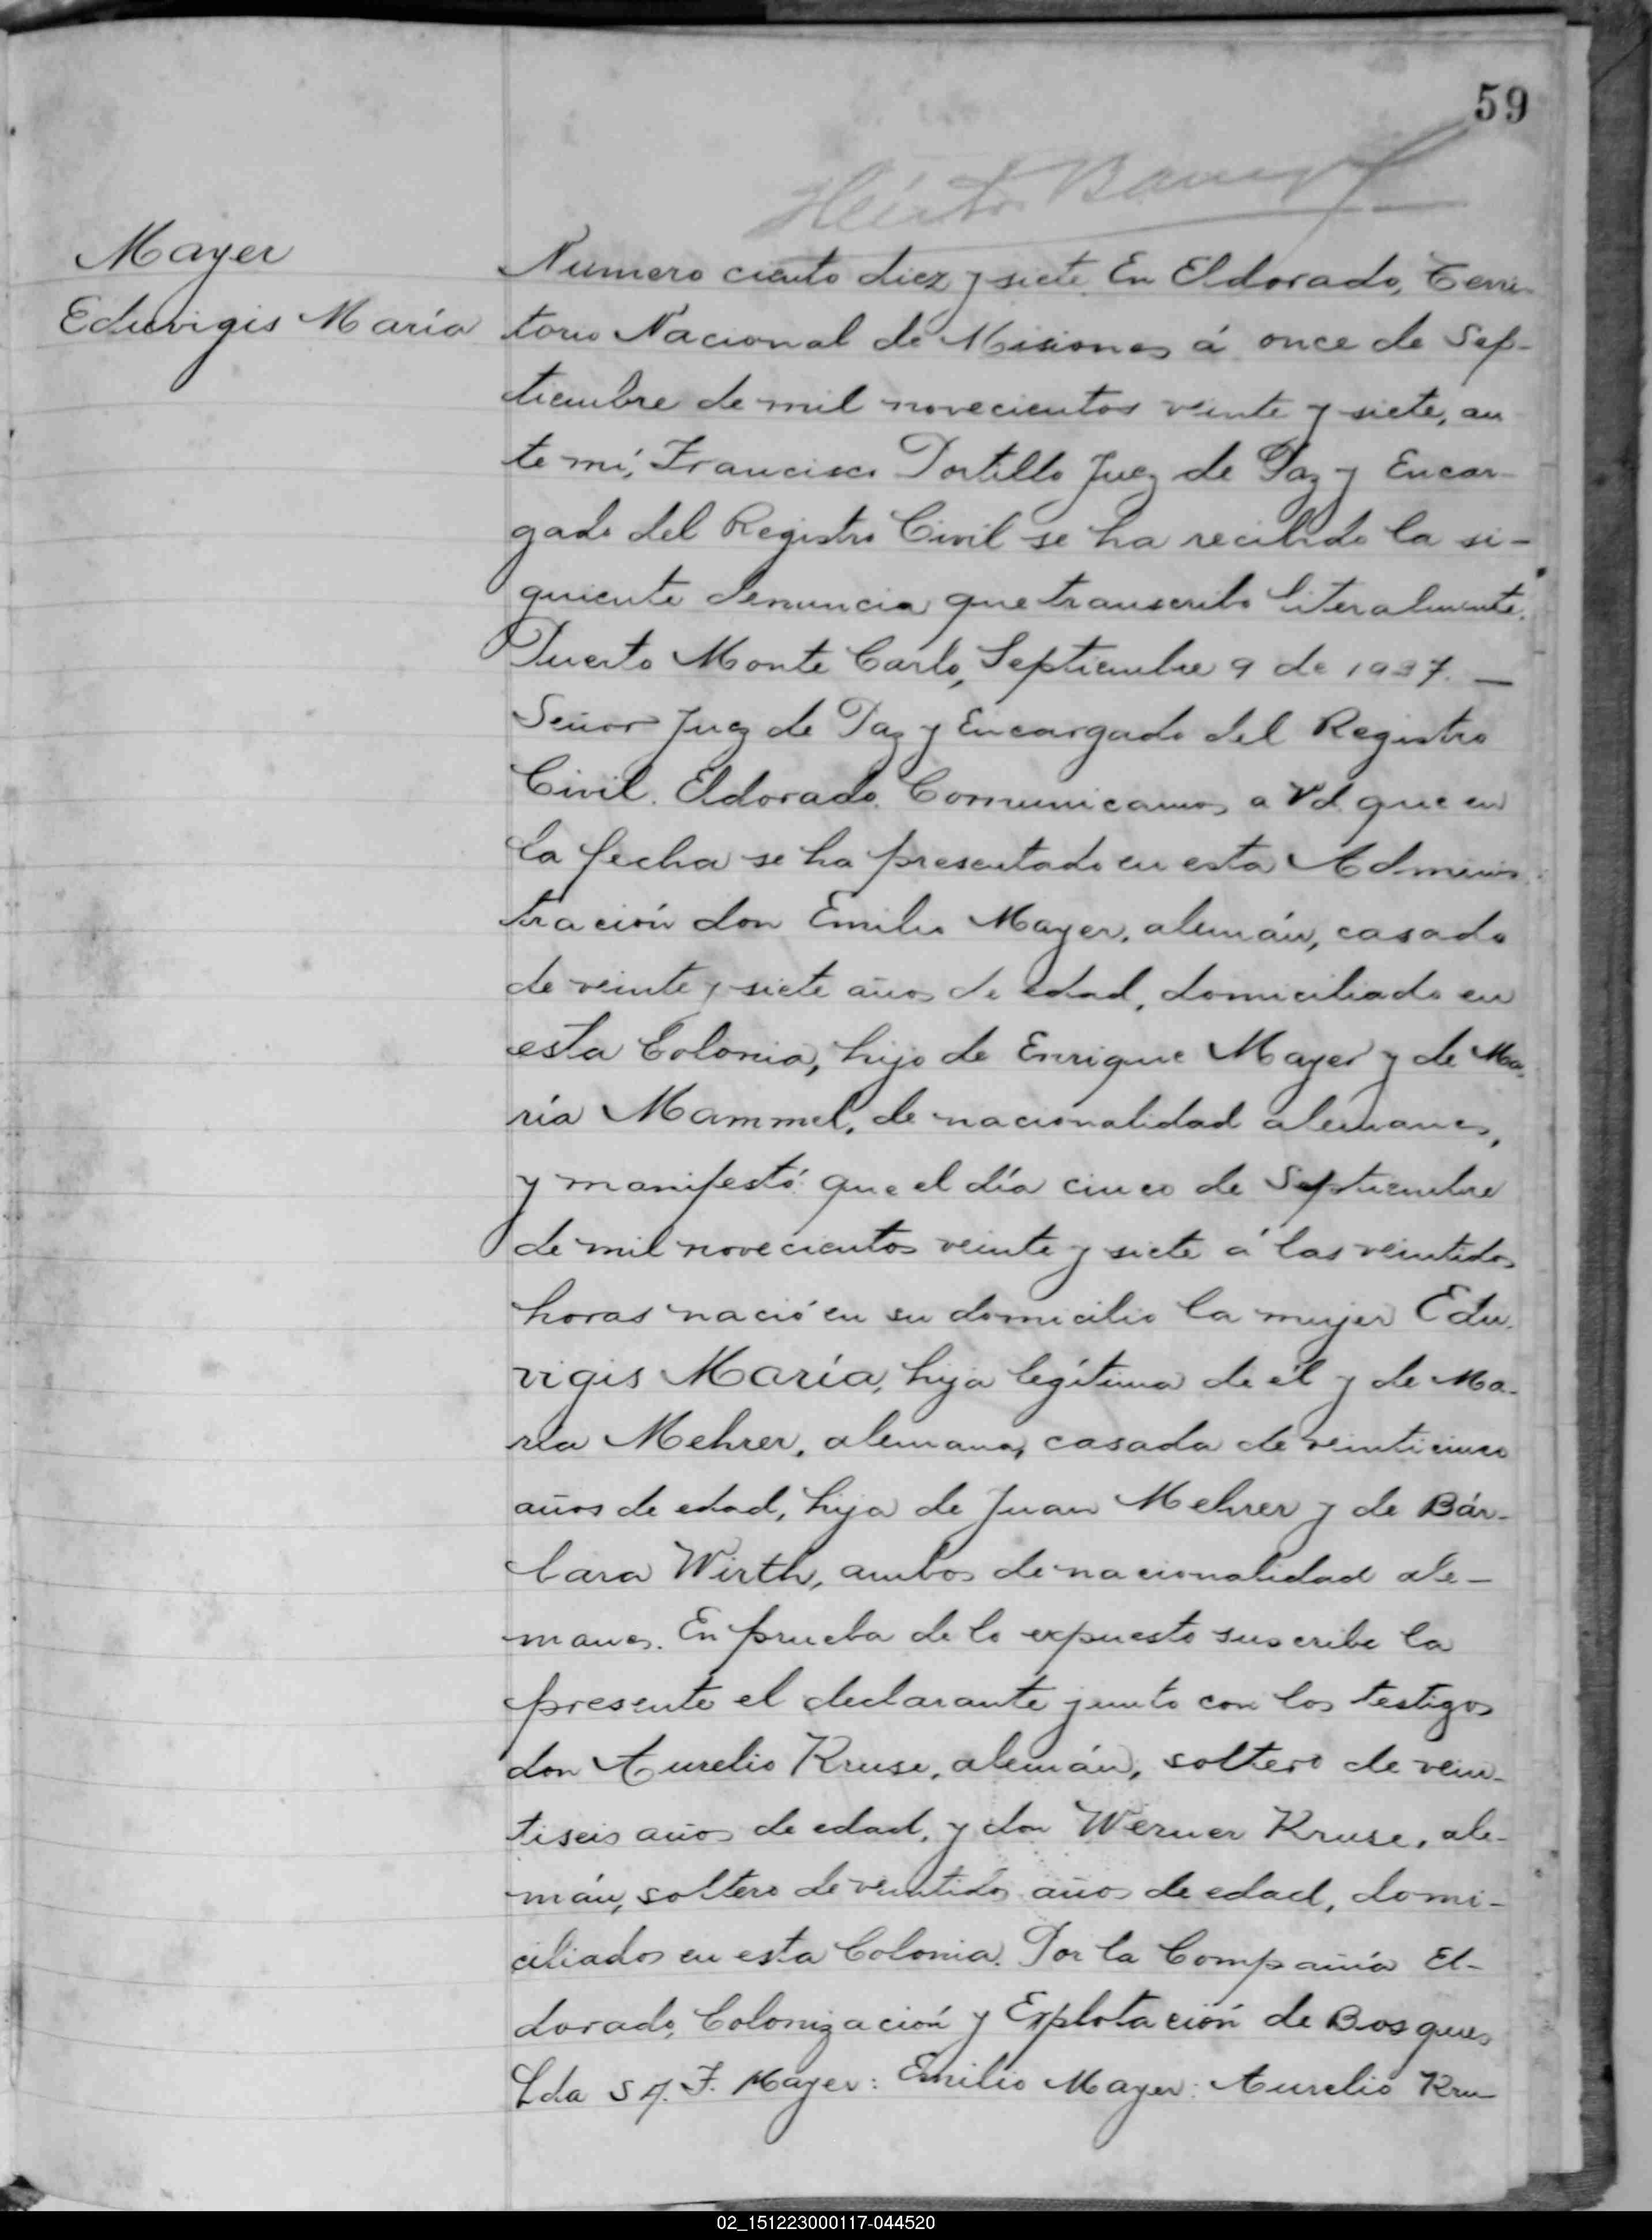 59
Mayer
Eduvigis María
Numero ciento diez y siete. En Eldorado, Terri-
torio Nacional de Misiones á once de Sep-
tiembre de mil novecientos veinte y siete, an
te mí, Francisco Portillo Juez de Paz y Encar-
gado del Registro Civil se ha recibido la si-
guiente denuncia que transcribo literalmente.
Puerto Monte Carlo, Septiembre 9 de 1927. —
Señor Juez de Paz y Encargado del Registro
Civil. Eldorado. Comunicamos a Vd. que en
la fecha se ha presentado en esta Adminis-
tración don Emilio Mayer, alemán, casado
de veinte y siete años de edad, domiciliado en
esta Colonia, hijo de Enrique Mayer y de Ma-
ría Mammel, de nacionalidad alemanes,
y manifestó: que el día cinco de Septiembre
de mil novecientos veinte y siete á las veintidos
horas nació en su domicilio la mujer Edu-
vigis María, hija legítima de él y de Ma-
ría Mehrer, alemana, casada de veinticinco
años de edad, hija de Juan Mehrer y de Bár-
bara Wirth, ambos de nacionalidad ale-
manes. En prueba de lo expuesto suscribe la
presente el declarante junto con los testigos
don Aurelio Kruse, alemán, soltero de vein-
tiseis años de edad, y don Werner Kruse, ale-
mán, soltero de veintidós años de edad, domi-
ciliados en esta Colonia. Por la Compañía El-
dorado, Colonización y Explotación de Bosques
Lda S A. F. Mayer: Emilio Mayer: Aurelio Kru-
02_151223000117-044520